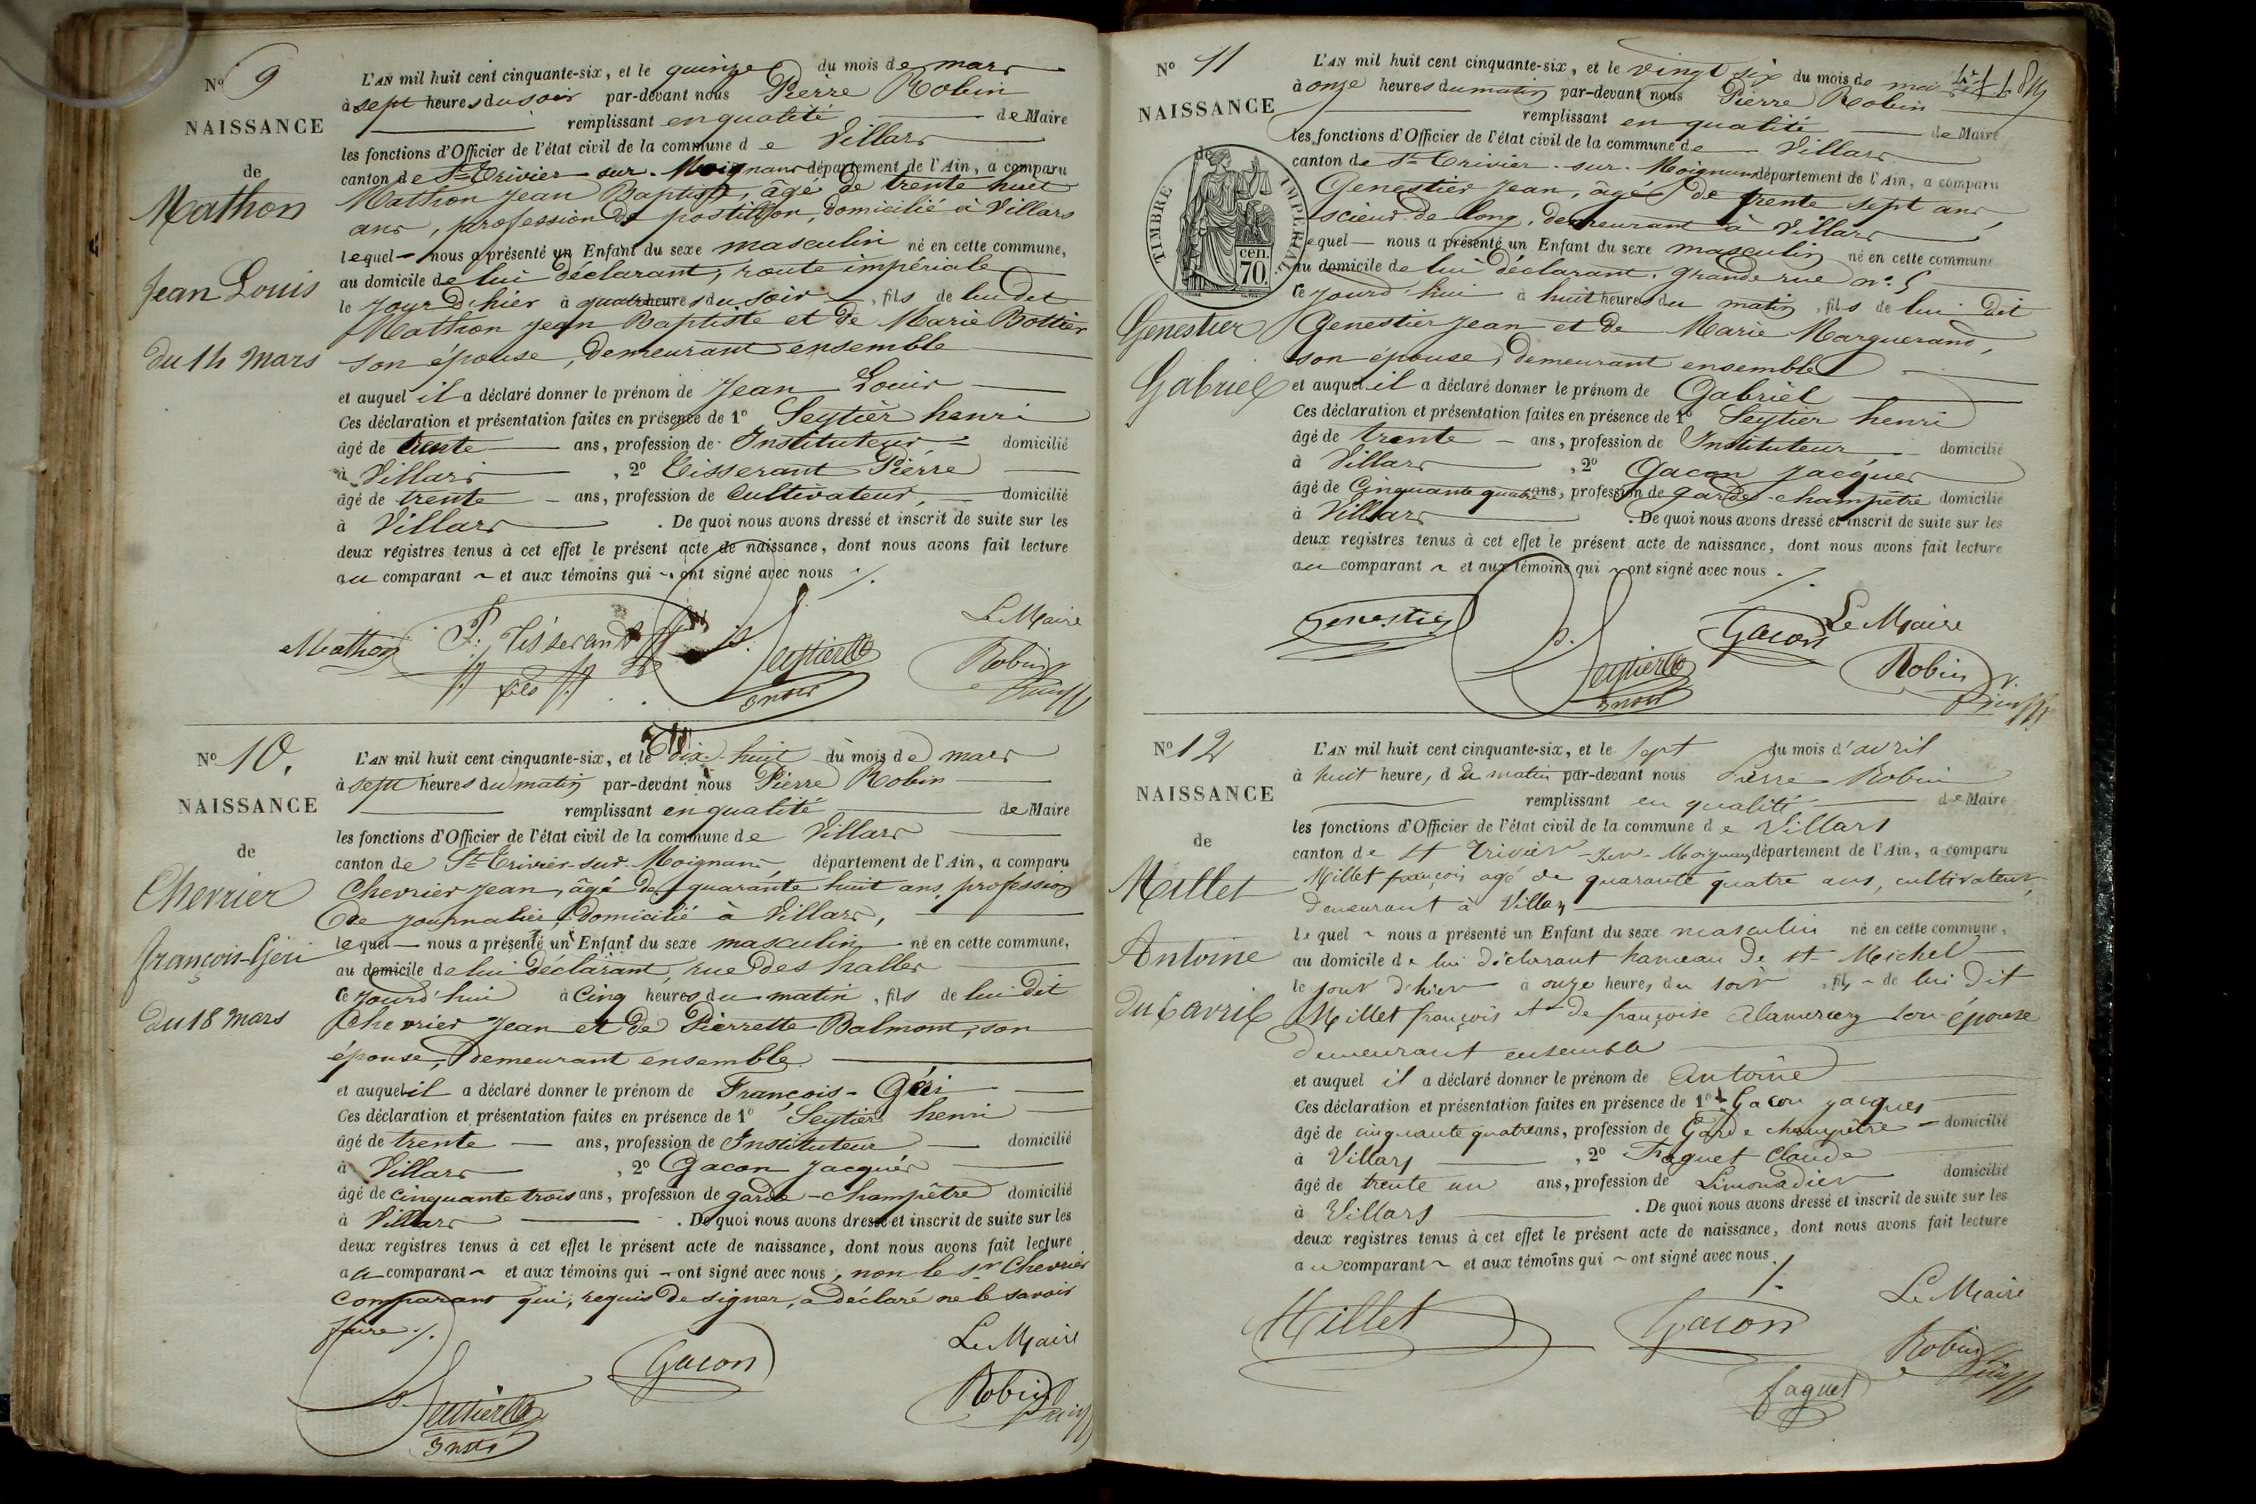 N° 9
NAISSANCE
de
Mathon
Jean Louis
du 14 mars
L'AN mil huit cent cinquante-six, et le quinze du mois de mars
à sept heures du soir par-devant nous Pierre Robin
remplissant en qualité de Maire
les fonctions d'Officier de l'état civil de la commune de Villars
canton de St Trivier-sur-Moignans département de l'Ain, a comparu
Mathon Jean Baptiste, âgé de trente huit
ans, profession de postillon, domicilié à Villars
lequel nous a présenté un Enfant du sexe masculin né en cette commune,
au domicile de lui déclarant, route impériale
le jour d'hier à quatre heures du soir, fils de lui dit
Mathon Jean Baptiste et de Marie Bottier
son épouse, demeurant ensemble
et auquel il a déclaré donner le prénom de Jean Louis
Ces déclaration et présentation faites en présence de 1° Seytier henri
âgé de trente ans, profession de Instituteur domicilié
à Villars, 2° Tisserant Pierre
âgé de trente ans, profession de Cultivateur, domicilié
à Villars. De quoi nous avons dressé et inscrit de suite sur les
deux registres tenus à cet effet le présent acte de naissance, dont nous avons fait lecture
au comparant et aux témoins qui ont signé avec nous ./.
Mathon P. Tisserand fils Seytier h Instr Le Maire
Robin
N° 10.
NAISSANCE
de
Chevrier
françois-Géri
du 18 mars
L'AN mil huit cent cinquante-six, et le dix-huit du mois de mars
à sept heures du matin par-devant nous Pierre Robin
remplissant en qualité de Maire
les fonctions d'Officier de l'état civil de la commune de Villars
canton de St Trivier-sur-Moignans département de l'Ain, a comparu
Chevrier Jean, âgé de quarante huit ans, profession
de journalier, domicilié à Villars,
lequel nous a présenté un Enfant du sexe masculin né en cette commune,
au domicile de lui déclarant, rue des halles
ce jourd'hui à cinq heures du matin, fils de lui dit
Chevrier Jean et de Pierrette Balmont, son
épouse, demeurant ensemble
et auquel il a déclaré donner le prénom de François-Géri
Ces déclaration et présentation faites en présence de 1° Seytier henri
âgé de trente ans, profession de Instituteur domicilié
à Villars, 2° Gacon Jacques
âgé de cinquante trois ans, profession de garde-champêtre domicilié
à Villars. De quoi nous avons dressé et inscrit de suite sur les
deux registres tenus à cet effet le présent acte de naissance, dont nous avons fait lecture
au comparant et aux témoins qui ont signé avec nous, non le sr Chevrier
comparant qui, requis de signer, a déclaré ne le savoir
faire ./.
Le Maire
Seytier h Instr Gacon Robin
N° 11
NAISSANCE
de
TIMBRE IMPERIAL
70. cen.
Genestier
Gabriel
L'AN mil huit cent cinquante-six, et le vingt six du mois de mars
à onze heures du matin par-devant nous Pierre Robin
remplissant en qualité de Maire
les fonctions d'Officier de l'état civil de la commune de Villars
canton de St Trivier-sur-Moignans département de l'Ain, a comparu
Genestier Jean, âgé de trente sept ans,
scieur de long, demeurant à Villars
lequel nous a présenté un Enfant du sexe masculin né en cette commune
au domicile de lui déclarant, grande rue n° 5
ce jourd'hui à huit heures du matin, fils de lui dit
Genestier Jean et de Marie Marguerand,
son épouse, demeurant ensemble
et auquel il a déclaré donner le prénom de Gabriel
Ces déclaration et présentation faites en présence de 1° Seytier henri
âgé de trente ans, profession de Instituteur domicilié
à Villars, 2° Gacon Jacques
âgé de Cinquante quatre ans, profession de garde-champêtre domicilié
à Villars. De quoi nous avons dressé et inscrit de suite sur les
deux registres tenus à cet effet le présent acte de naissance, dont nous avons fait lecture
au comparant et aux témoins qui ont signé avec nous ./.
Genestier Seytier h Instr Gacon Le Maire
Robin
N° 12
NAISSANCE
de
Millet
Antoine
du 6 avril
L'AN mil huit cent cinquante-six, et le sept du mois d'avril
à huit heures du matin par-devant nous Pierre Robin
remplissant en qualité de Maire
les fonctions d'Officier de l'état civil de la commune de Villars
canton de St Trivier-sur-Moignans département de l'Ain, a comparu
Millet françois agé de quarante quatre ans, cultivateur,
demeurant à Villars
lequel nous a présenté un Enfant du sexe masculin né en cette commune,
au domicile de lui déclarant hameau de St Michel
le jour d'hier à onze heures du soir, fils de lui dit
Millet françois et de françoise Alamercery son épouse
demeurant ensemble
et auquel il a déclaré donner le prénom de Antoine
Ces déclaration et présentation faites en présence de 1° Gacon jacques
âgé de cinquante quatre ans, profession de Garde champêtre domicilié
à Villars, 2° Faguet Claude
âgé de trente un ans, profession de Limonadier domicilié
à Villars. De quoi nous avons dressé et inscrit de suite sur les
deux registres tenus à cet effet le présent acte de naissance, dont nous avons fait lecture
au comparant et aux témoins qui ont signé avec nous ./.
Le Maire
Millet Gacon Robin
faguet